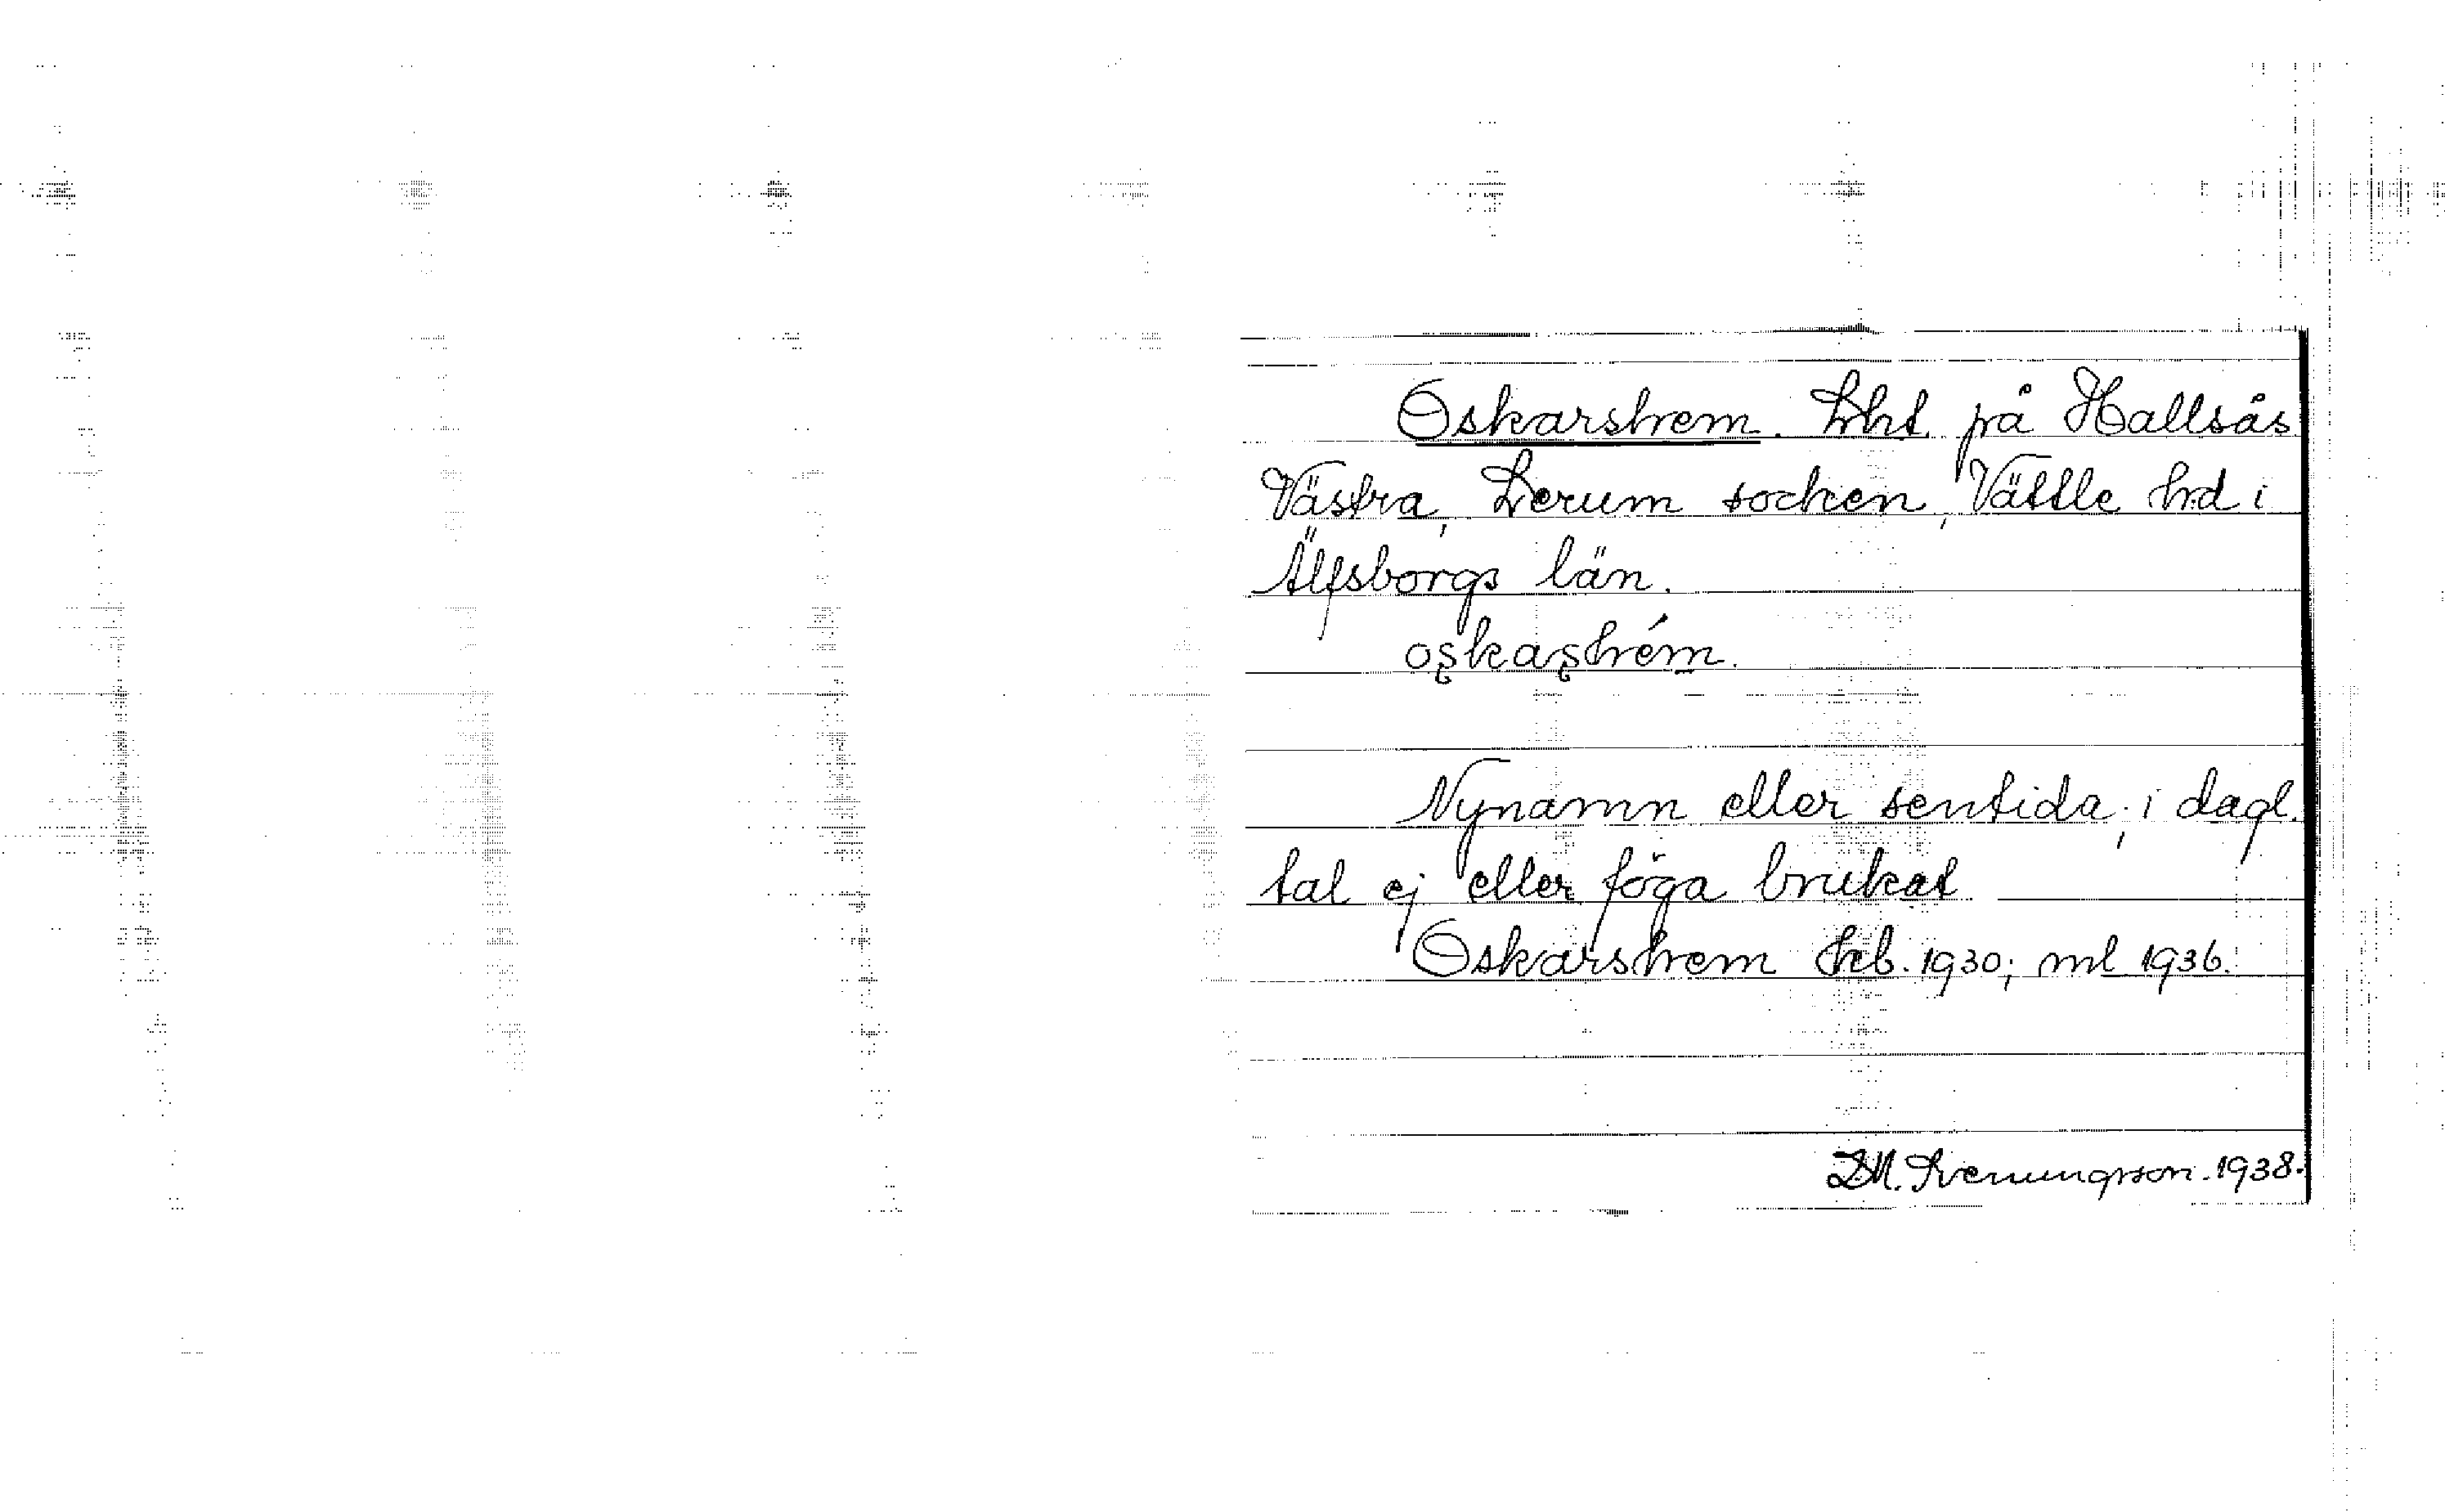 Oskarshem. Lht. på Hallsås
Västra, Lerum socken, Vättle hd i
Älfsborgs län.
oskashém.
Nynamn eller sentida; i dagl.
tal ej eller föga brukat
Oskarshem frb. 1930; ml 1936.
D.M. Svenungsson. 1938.